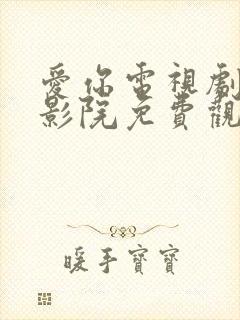 愛你電視劇
影院免費觀
暖手寶寶